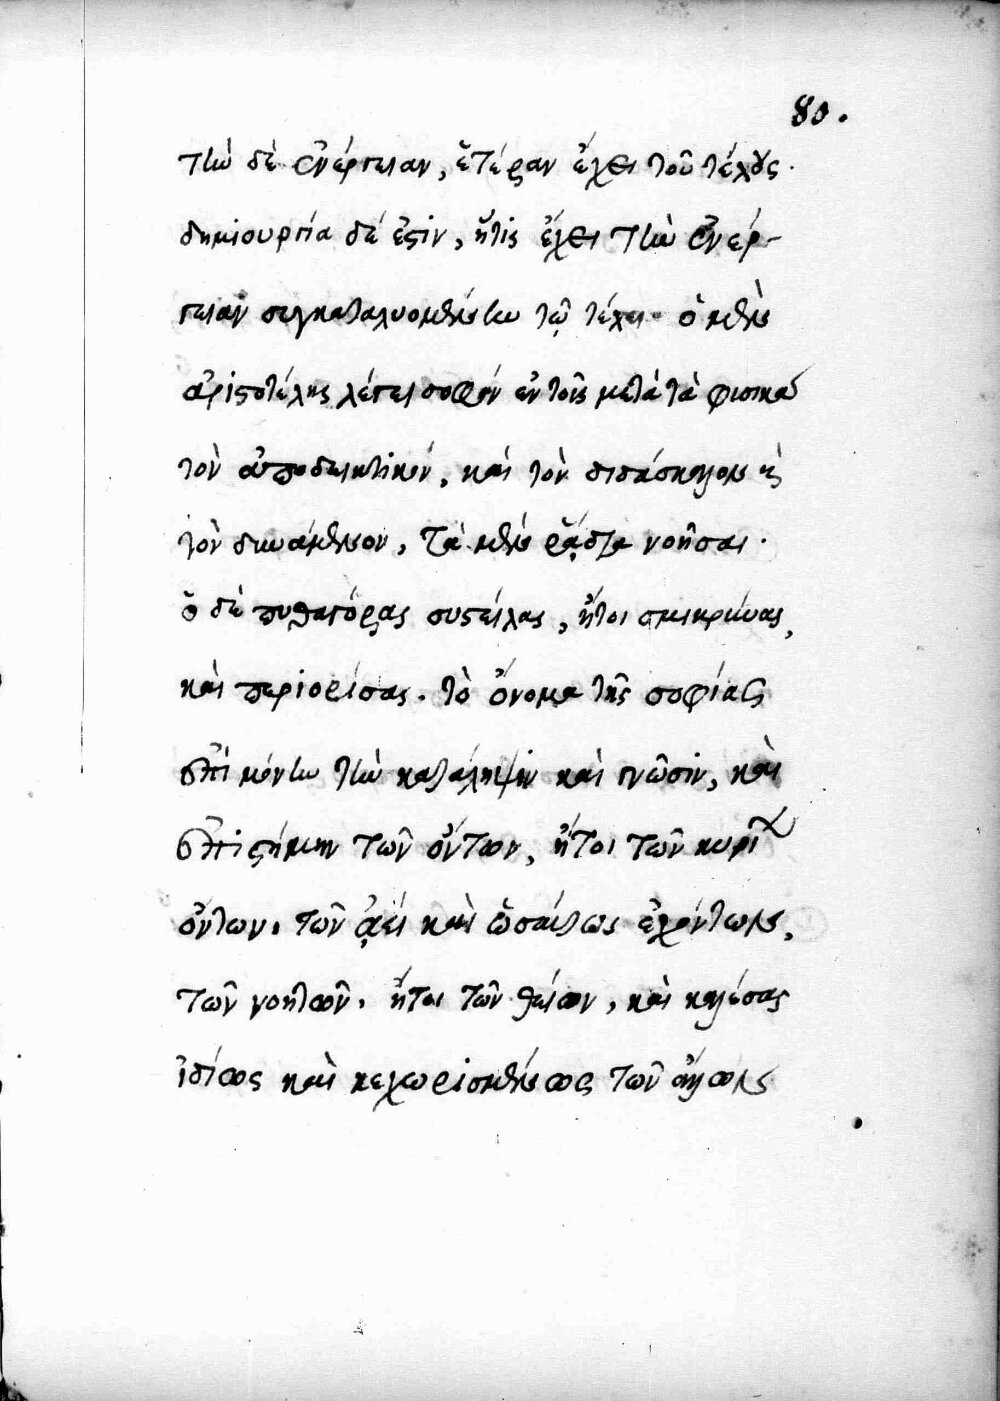 80.
τὴν δὲ ἐνέργειαν, ἑτέραν ἔχει τοῦ τέλους.
δημιουργία δέ ἐστιν, ἥτις ἔχει τὴν ἐνέρ-
γειαν συγκαταλυομένην τῷ τέλει· ὁ μὲν
ἀριστοτέλης λέγει σοφὸν ἐν τοῖς μετὰ τὰ φυσικὰ
τὸν ἀποδεικτικόν, καὶ τὸν διδάσκαλον καὶ
τὸν δυνάμενον, τὰ μὲν ῥᾴδια νοῆσαι.
ὁ δὲ πυθαγόρας συστείλας, ἤτοι σμικρύνας,
καὶ περιορίσας. τὸ ὄνομα τῆς σοφίας
ἐπὶ μόνην τὴν κατάληψιν καὶ γνῶσιν, καὶ
ἐπιστήμην τῶν ὄντων, ἤτοι τῶν κυρίως
ὄντων. τῶν ἀεὶ καὶ ὡσαύτως ἐχόντων,
τῶν νοητῶν. ἤτοι τῶν θείων, καὶ καλέσας
ἰδίως καὶ κεχωρισμένως τῶν ἄλλων